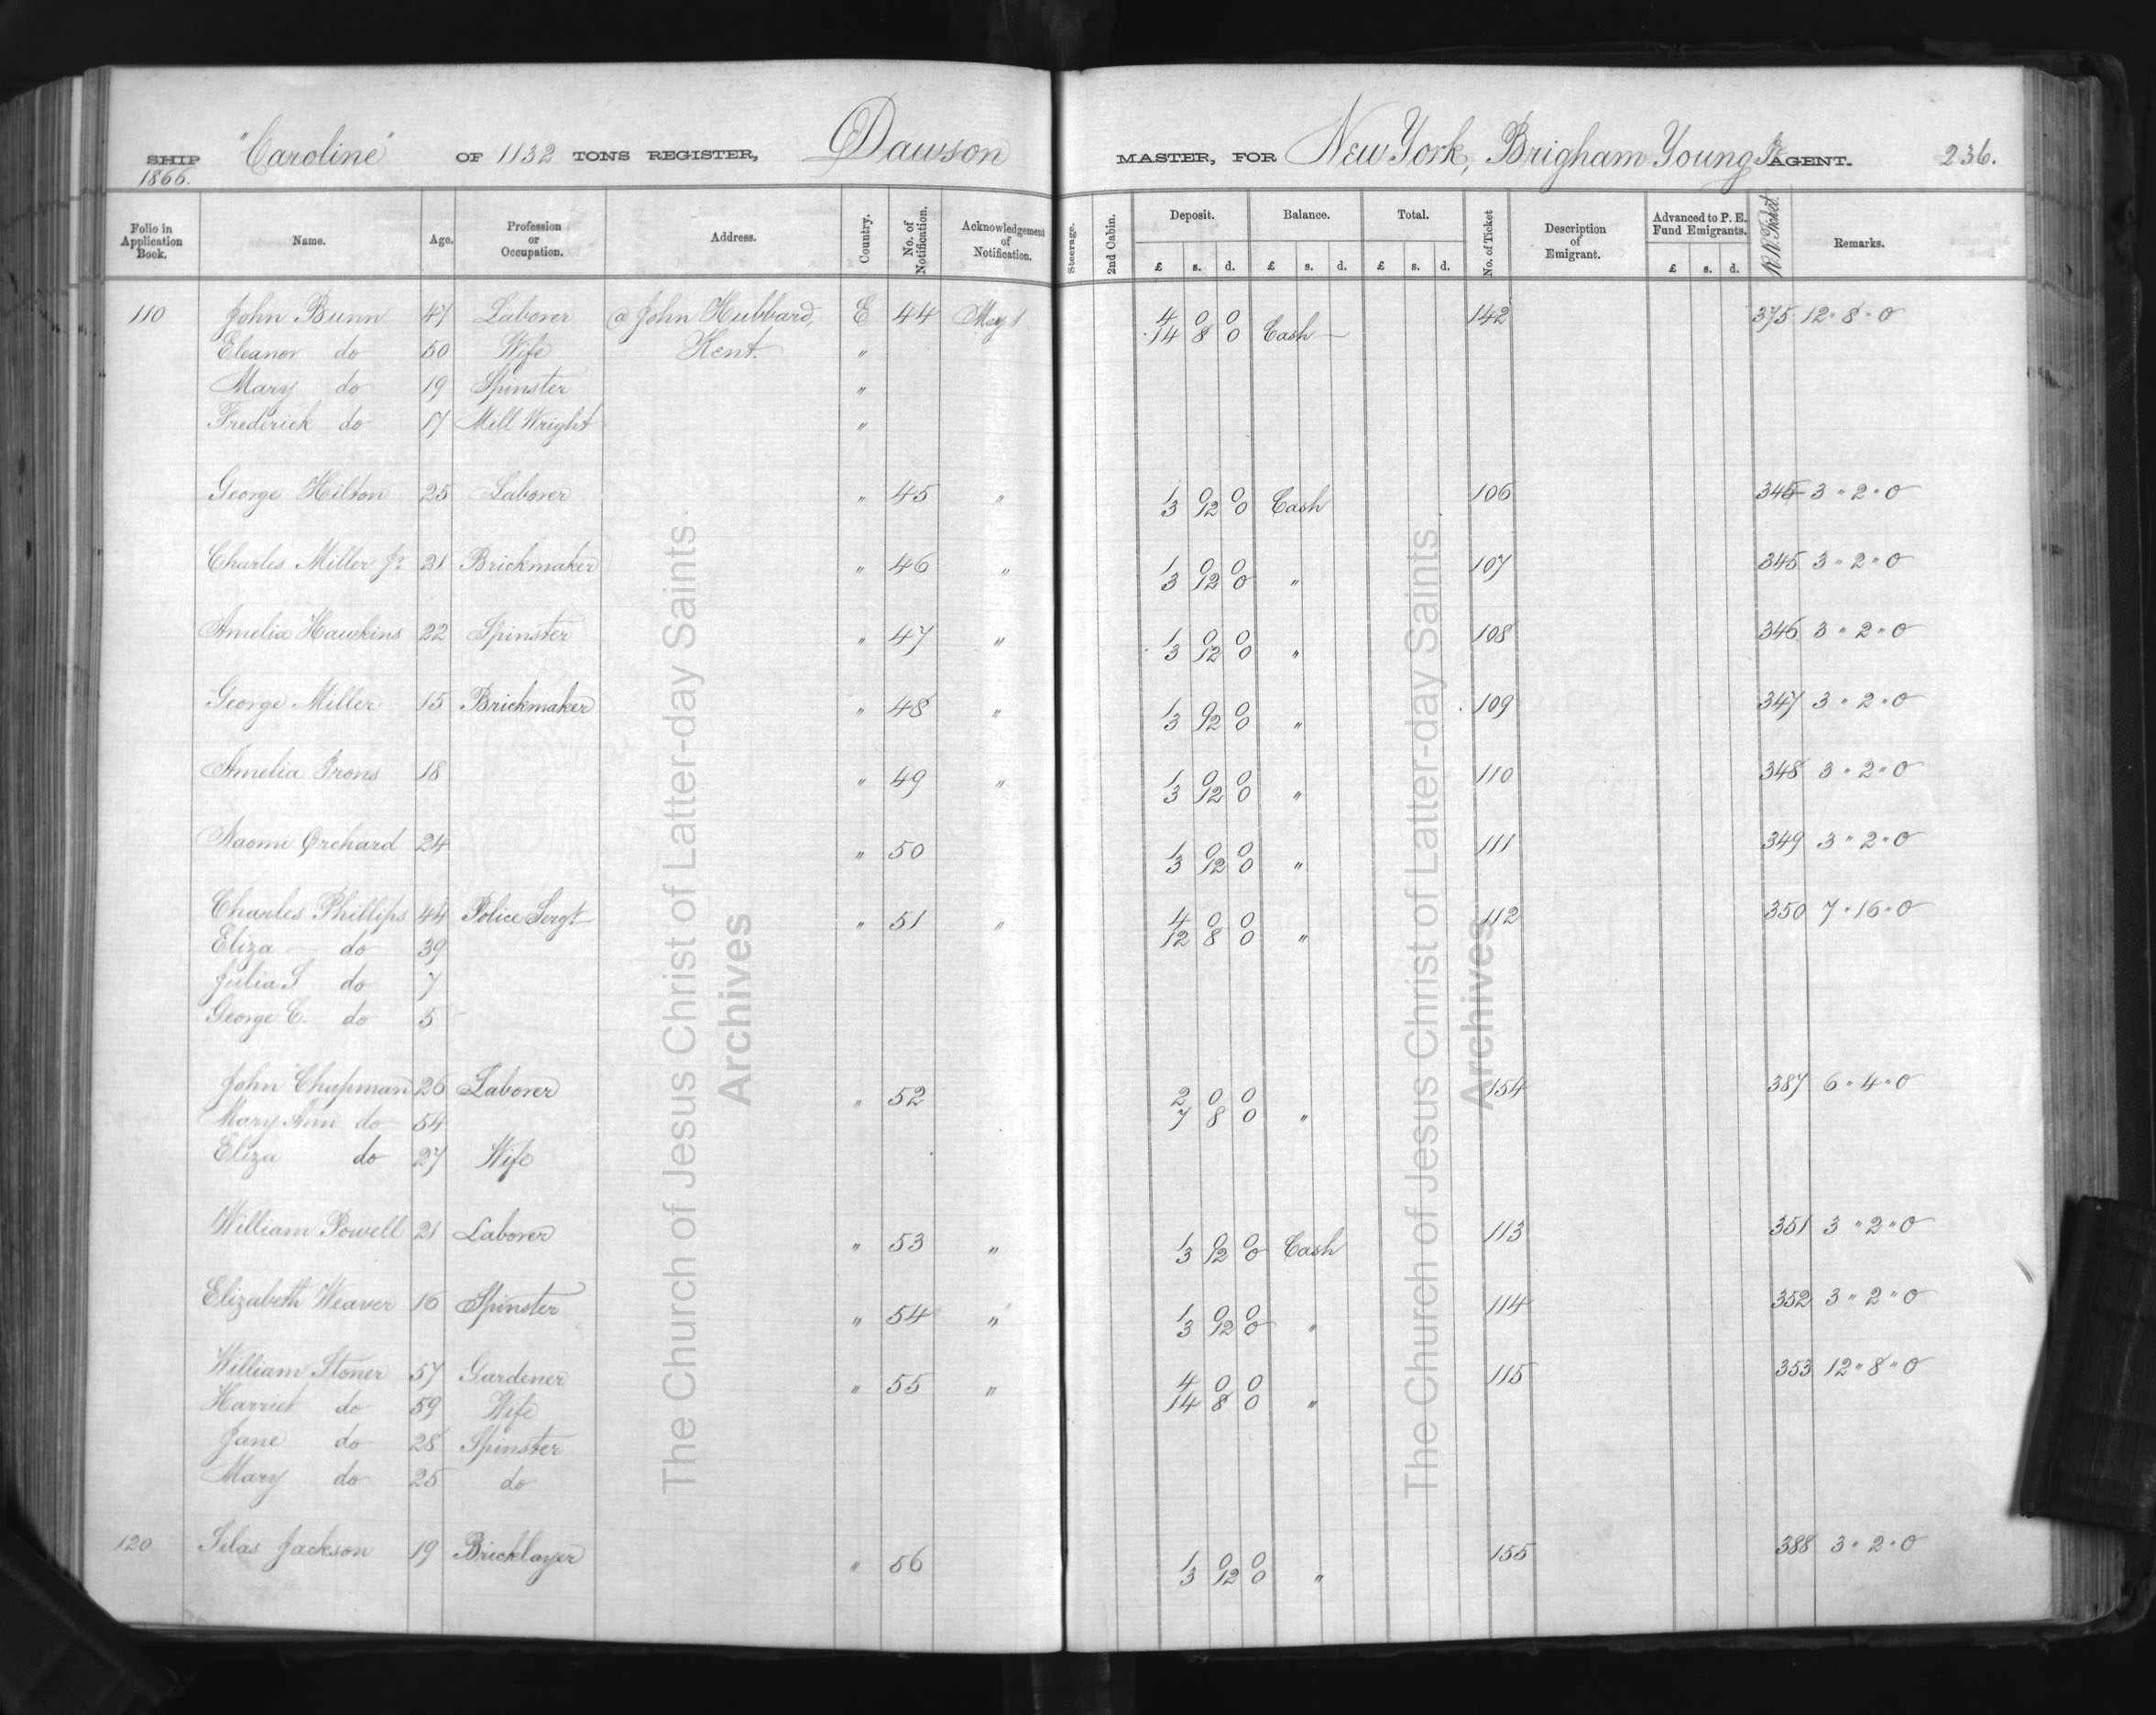 SHIP "Caroline" OF 1132 TONS REGISTER, Dawson MASTER, FOR New York, Brigham Young Jr AGENT. 236.
1866.
Folio in Application Book. Name. Age. Profession or Occupation. Address. Country. No. of Notification. Acknowledgement of Notification. Steerage. 2nd Cabin. Deposit. £ s. d. Balance. £ s. d. Total. £ s. d. No. of Ticket Description of Emigrant. Advanced to P. E. Fund Emigrants. £ s. d. R R Ticket. Remarks.
110 John Bunn 47 Laborer @ John Hubbard, E 44 May 1 4 0 0 142 375 12 " 8 " 0
Eleanor do 50 Wife Kent. " 14 8 0 Cash
Mary do 19 Spinster "
Frederick do 17 Mill Wright "
George Hilton 25 Laborer " 45 " 1 0 0 106 345 3 " 2 " 0
3 12 0 Cash
Charles Miller Jr 21 Brickmaker " 46 " 1 0 0 107 345 3 " 2 " 0
3 12 0 "
Amelia Hawkins 22 Spinster " 47 " 1 0 0 108 346 3 " 2 " 0
3 12 0 "
George Miller 15 Brickmaker " 48 " 1 0 0 109 347 3 " 2 " 0
3 12 0 "
Amelia Irons 18 " 49 " 1 0 0 110 348 3 " 2 " 0
3 12 0 "
Naomi Orchard 24 " 50 1 0 0 111 349 3 " 2 " 0
3 12 0 "
Charles Phillips 44 Police Sergt " 51 " 4 0 0 112 350 7 " 16 " 0
Eliza do 39 12 8 0 "
Julia S do 7
George C. do 5
John Chapman 26 Laborer " 52 2 0 0 154 387 6 " 4 " 0
Mary Ann do 54 7 8 0 "
Eliza do 27 Wife
William Powell 21 Laborer " 53 " 1 0 0 113 351 3 " 2 " 0
3 12 0 Cash
Elizabeth Weaver 16 Spinster " 54 " 1 0 0 114 352 3 " 2 " 0
3 12 0 "
William Stoner 57 Gardener " 55 " 4 0 0 115 353 12 " 8 " 0
Harriet do 59 Wife 14 8 0 "
Jane do 28 Spinster
Mary do 25 do
120 Silas Jackson 19 Bricklayer " 56 1 0 0 155 388 3 " 2 " 0
3 12 0 "
The Church of Jesus Christ of Latter-day Saints
Archives
The Church of Jesus Christ of Latter-day Saints
Archives